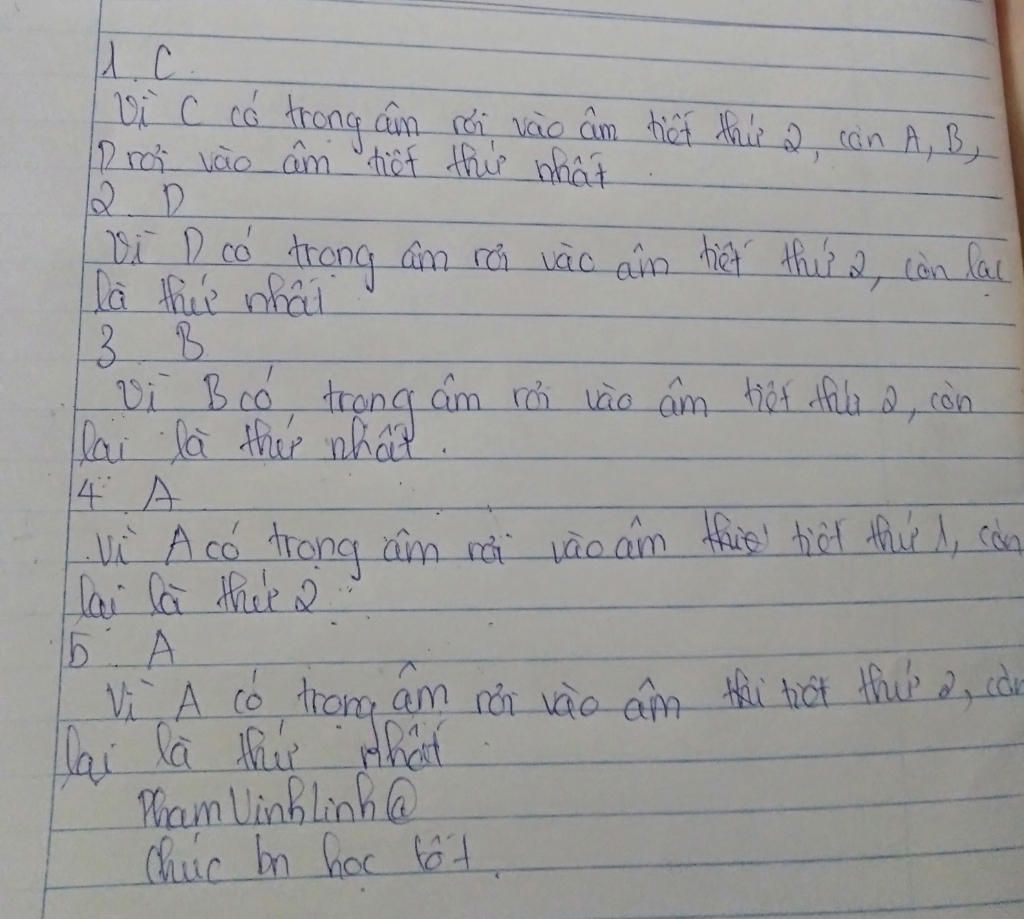 1. C.
Vì C có trong âm rơi vào âm tiết thứ 2, còn A, B,
D rơi vào âm tiết thứ nhất.
2 D
Vì D có trong âm rơi vào âm tiết thứ 2, còn lại
là thứ nhất
3 B
Vì B có trong âm rơi vào âm tiết thứ 2, còn
lại là thứ nhất.
4 A
Vì A có trọng âm rơi vào âm tiết thứ 1, còn
lại là thứ 2.
5 A
Vì A có trong âm rơi vào âm tiết thứ 2, còn
lại là thứ nhất
PhamVinhlinh@
Chúc bn học tốt.